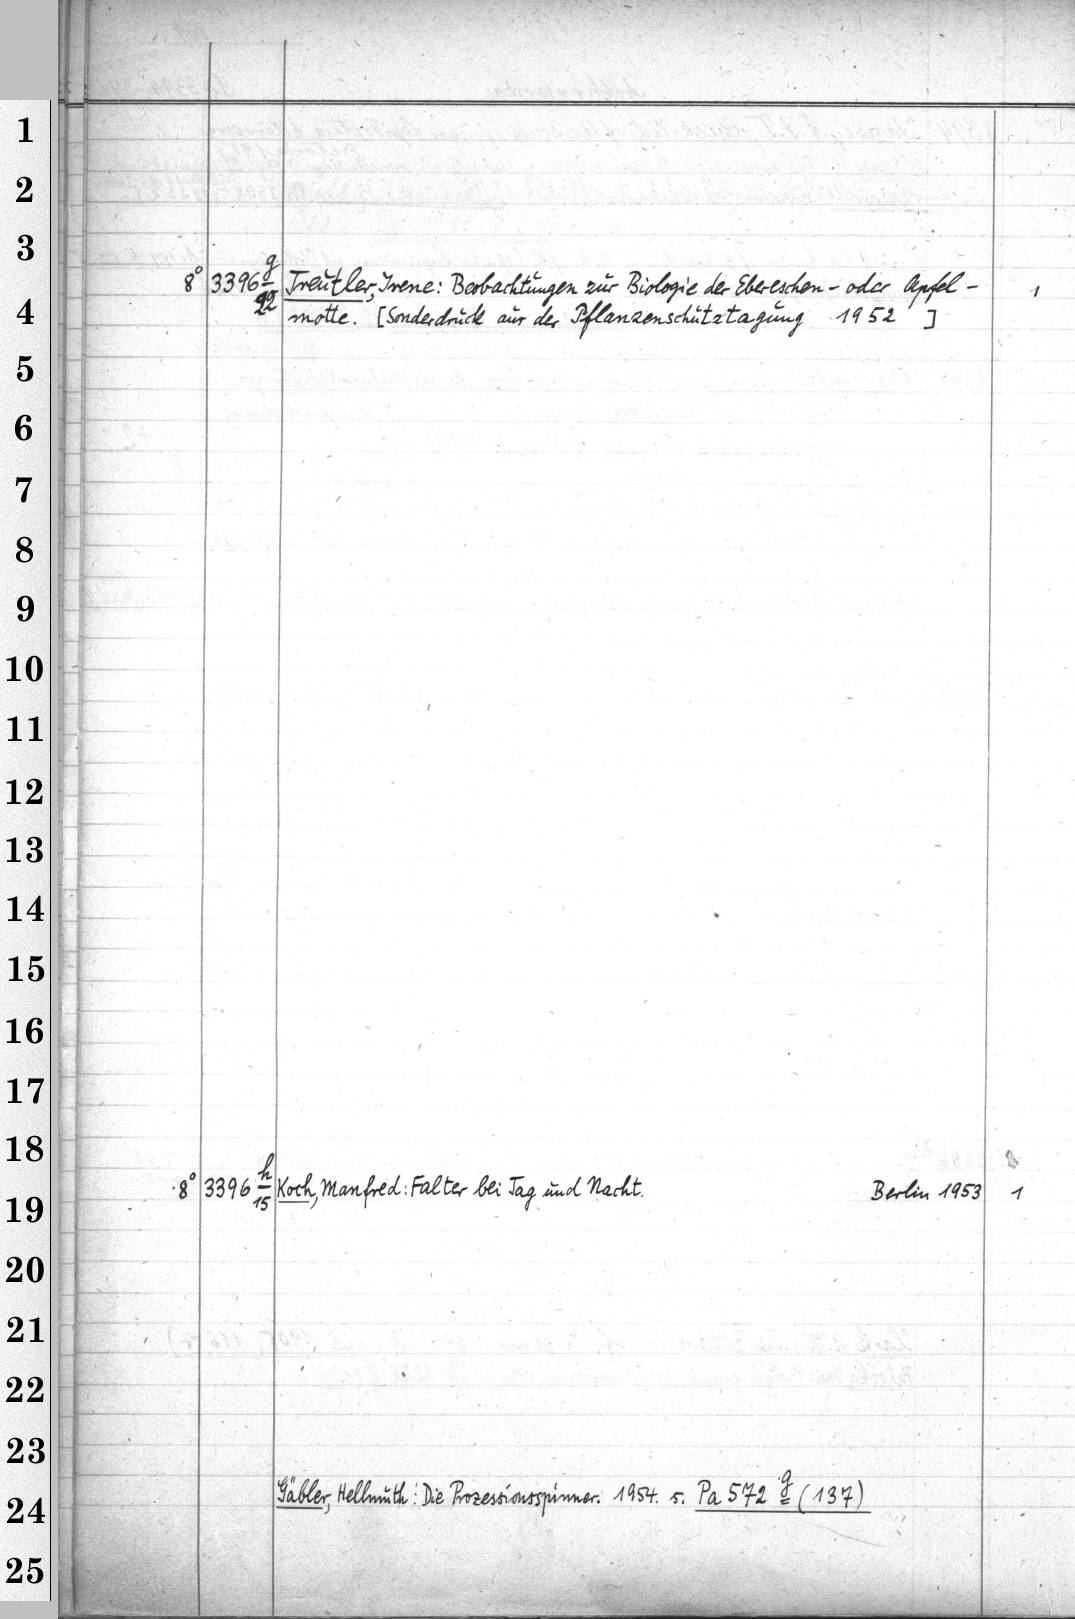 1
2
3
8° 3396 g Treutler, Irene: Beobachtungen zur Biologie der Ebereschen- oder Apfel- 1
4
motte. [Sonderdruck aus der Pflanzenschutztagung 1952 ]
5
6
7
8
9
10
11
12
13
14
15
16
17
18
8° 3396 h/15 Koch, Manfred: Falter bei Tag und Nacht. Berlin 1953 1
19
20
21
22
23
Gäbler, Hellmuth: Die Prozessionsspinner. 1954. s. Pa 572 g (137)
24
25